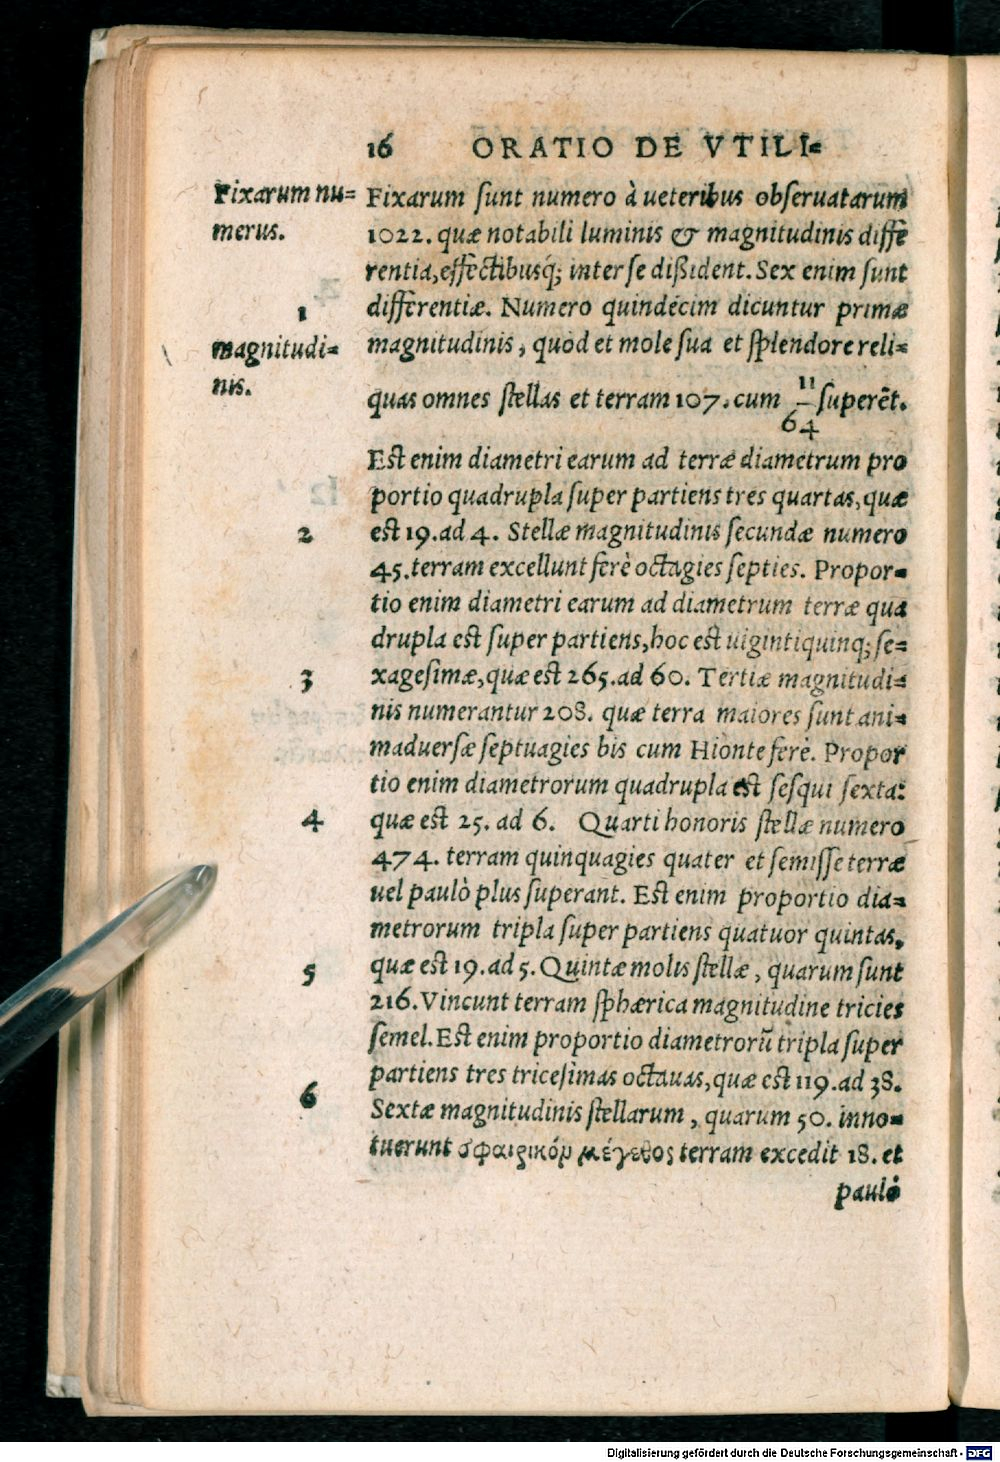 16 ORATIO DE VTILI=
Fixarum nu=
merus.
Fixarum ſunt numero à ueteribus obſeruatarum
1022. quæ notabili luminis & magnitudinis diffe
rentia, effectibusq́; inter ſe dißident. Sex enim ſunt
1
differentiæ. Numero quindecim dicuntur primæ
magnitudi=
nis.
magnitudinis, quòd et mole ſua et ſplendore reli=
quas omnes ſtellas et terram 107. cum 11/64 ſuperẽt.
Eſt enim diametri earum ad terræ diametrum pro
portio quadrupla ſuper partiens tres quartas, quæ
2
eſt 19. ad 4. Stellæ magnitudinis ſecundæ numero
45. terram excellunt ferè octagies ſepties. Propor=
tio enim diametri earum ad diametrum terræ qua
drupla eſt ſuper partiens, hoc eſt uigintiquinq; ſe=
3
xageſimæ, quæ eſt 265. ad 60. Tertiæ magnitudi=
nis numerantur 208. quæ terra maiores ſunt ani=
maduerſæ ſeptuagies bis cum Hionte ferè. Propor
tio enim diametrorum quadrupla eſt ſeſqui ſexta:
4
quæ eſt 25. ad 6. Quarti honoris ſtellæ numero
474. terram quinquagies quater et ſemiſſe terræ
uel paulò plus ſuperant. Eſt enim proportio dia=
metrorum tripla ſuper partiens quatuor quintas,
5
quæ eſt 19. ad 5. Quintæ molis ſtellæ, quarum ſunt
216. Vincunt terram ſphærica magnitudine tricies
ſemel. Eſt enim proportio diametrorũ tripla ſuper
partiens tres triceſimas octauas, quæ eſt 119. ad 38.
6
Sextæ magnitudinis ſtellarum, quarum 50. inno=
tuerunt σφαιρικὸν μέγεθος terram excedit 18. et
paulò
Digitalisierung gefördert durch die Deutsche Forschungsgemeinschaft - DFG